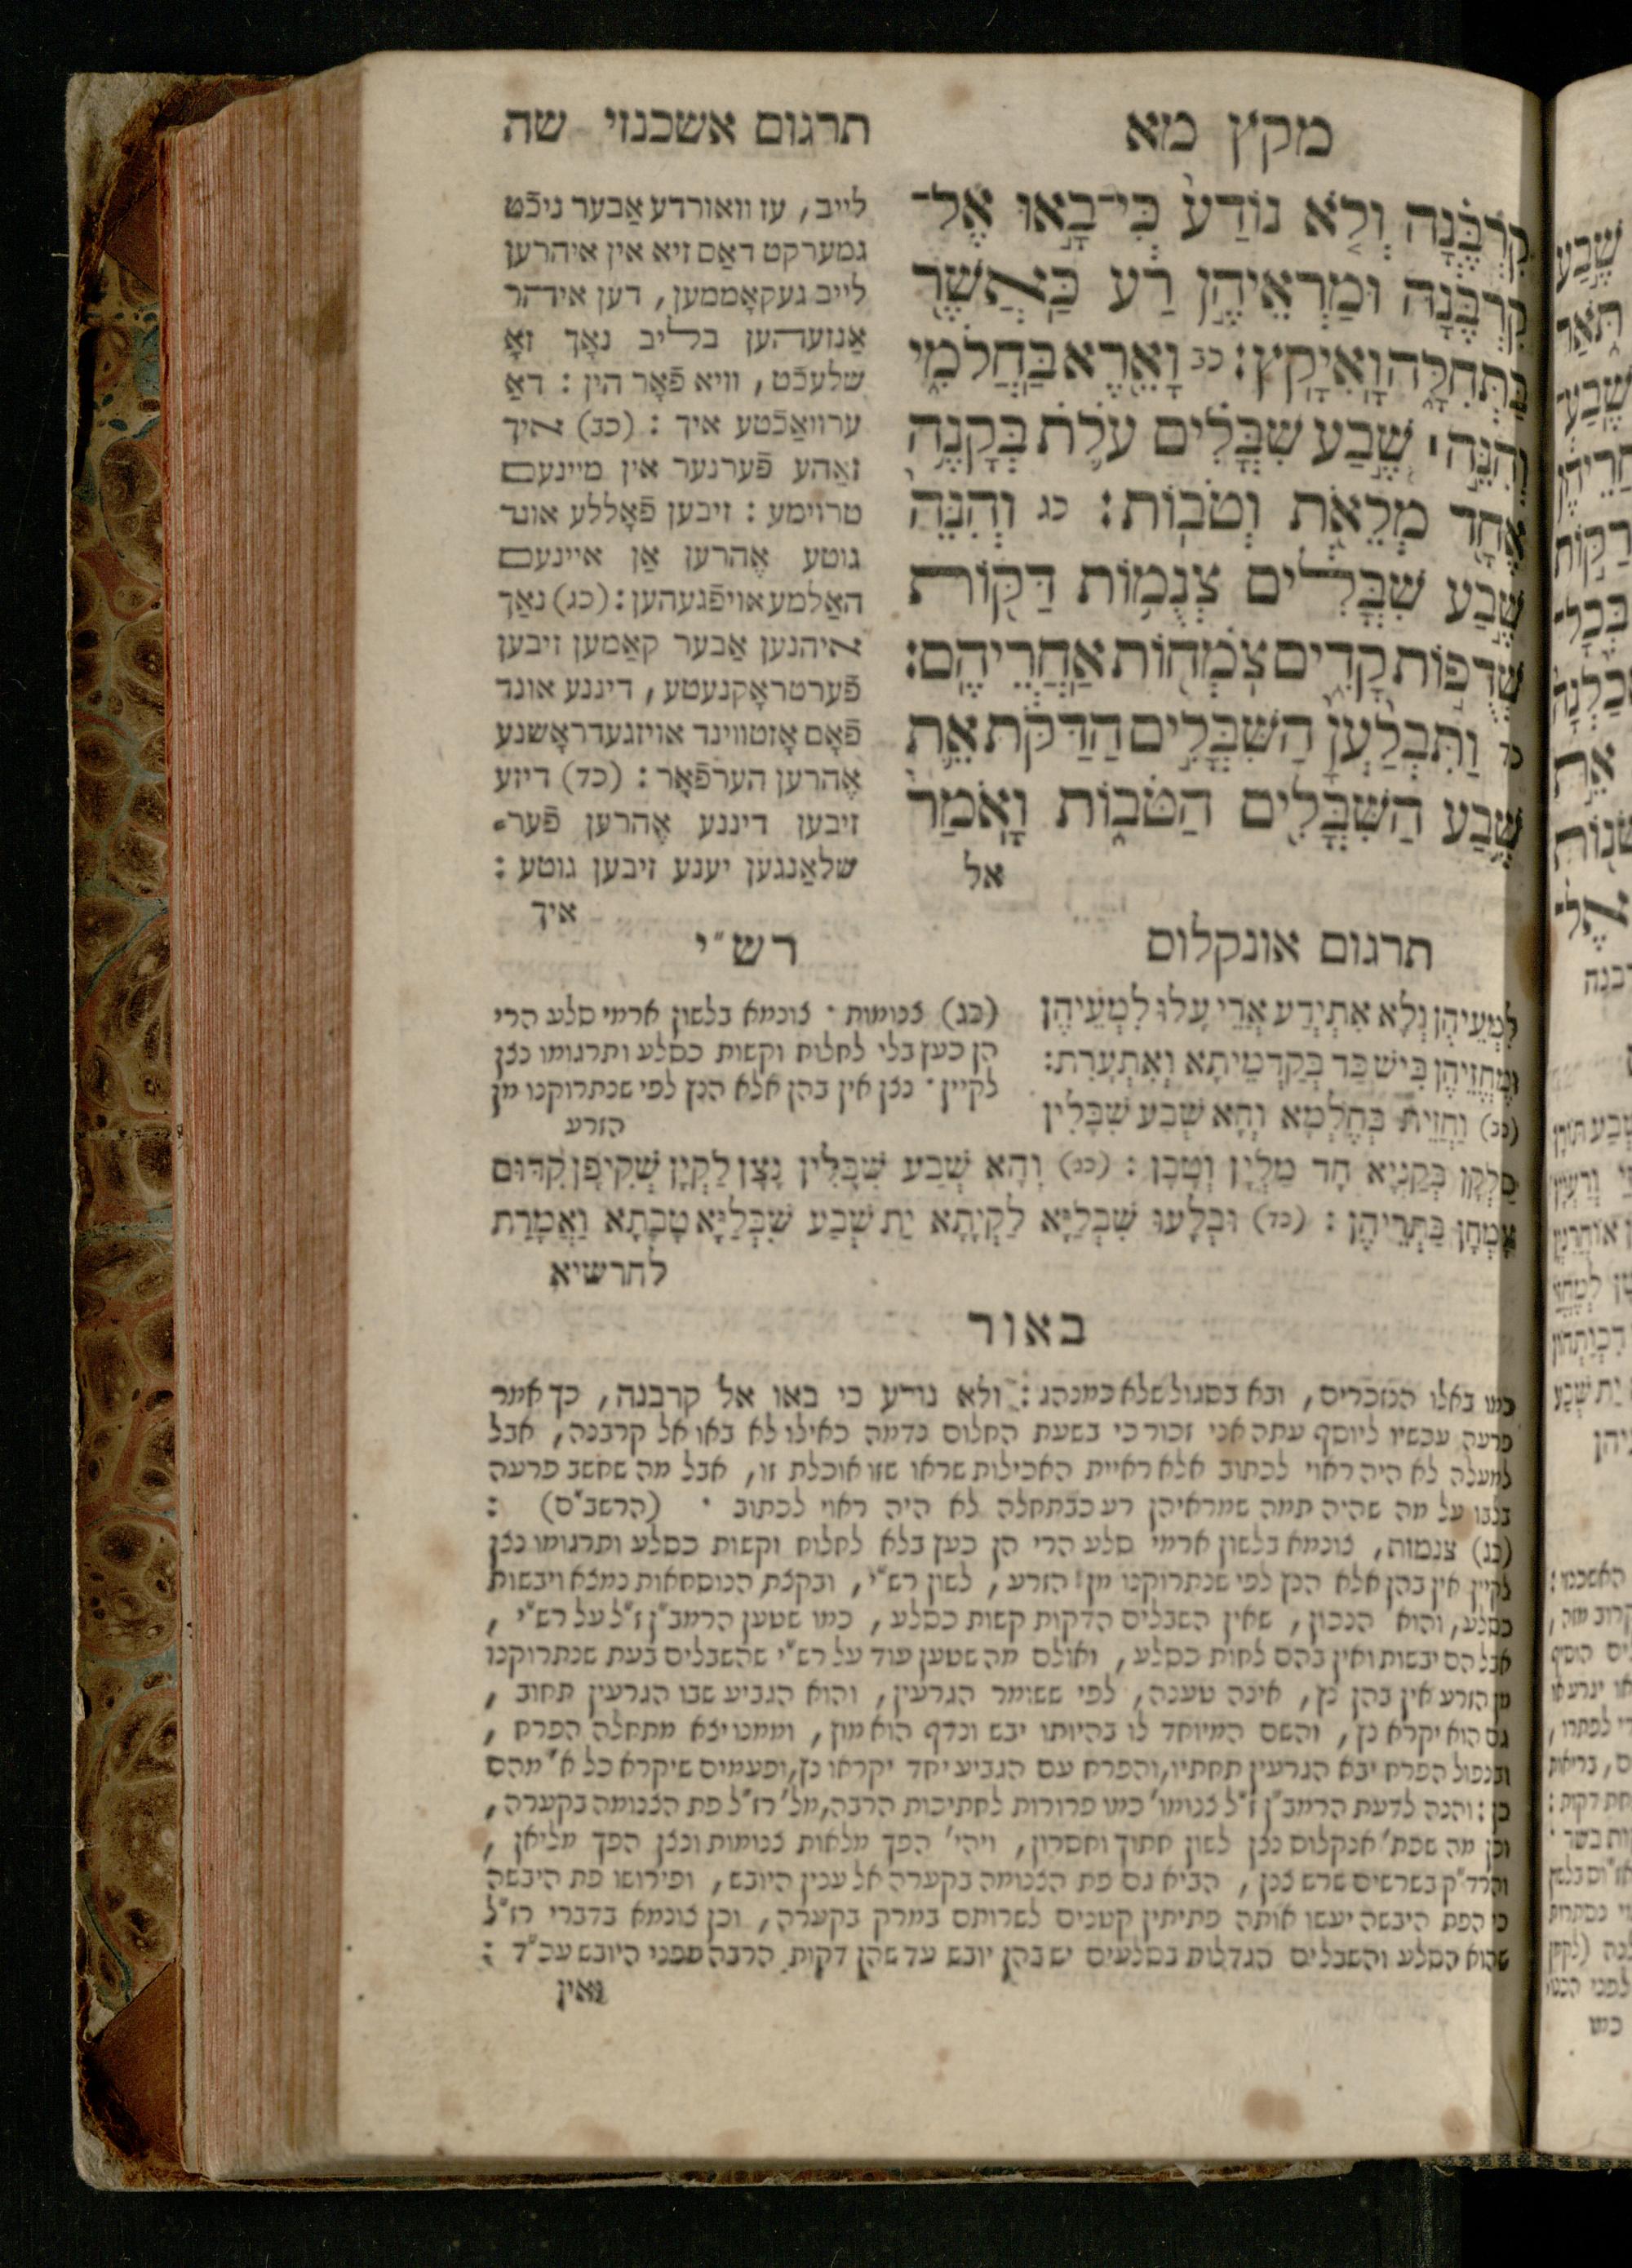 מקץ מא
קִרְבֶּ֗נָה וְלֹ֤א נוֹדַע֙ כִּי־בָ֣אוּ אֶל־
קִרְבֶּ֔נָה וּמַרְאֵיהֶ֣ן רַ֔ע כַּאֲשֶׁ֖ר
בַּתְּחִלָּ֑ה וָאִיקָֽץ׃ כב וָאֵ֖רֶא בַּחֲלֹמִ֑י
וְהִנֵּ֣ה ׀ שֶׁ֣בַע שִׁבֳּלִ֗ים עֹלֹ֛ת בְּקָנֶ֥ה
אֶחָ֖ד מְלֵאֹ֥ת וְטֹבֽוֹת׃ כג וְהִנֵּה֙
שֶׁ֣בַע שִׁבֳּלִ֔ים צְנֻמ֥וֹת דַּקּ֖וֹת
שְׁדֻפ֣וֹת קָדִ֑ים צֹמְח֖וֹת אַחֲרֵיהֶֽם׃
כד וַתִּבְלַ֙עְןָ֙ הַשִּׁבֳּלִ֣ים הַדַּקֹּ֔ת אֵ֛ת
שֶׁ֥בַע הַֽשִּׁבֳּלִ֖ים הַטֹּב֑וֹת וָֽאֹמַר֙
אל
תרגום אשכנזי שה
לייב, עז וואורדע אַבער ניכֿט
גמערקט דאַס זיא אין איהרען
לייב געקאָממען, דען איהר
אַנזעהען בליב נאָך זאָ
שלעכֿט, וויא פֿאָר הין : דאַ
ערוואַכֿטע איך : (כב) איך
זאַהע פֿערנער אין מיינעם
טרוימע : זיבען פֿאָללע אונד
גוטע אֶהרען אַן איינעם
האַלמע אויפֿגעהען : (כג) נאַך
איהנען אַבער קאַמען זיבען
פֿערטראָקנעטע, דיננע אונד
פֿאָם אָזטווינד אויזגעדראָשנע
אֶהרען הערפֿאָר : (כד) דיזע
זיבען דיננע אֶהרען פֿער-
שלאַנגען יענע זיבען גוטע :
איך
תרגום אונקלוס
לִמְעֵיהֶן וְלָא אִתְיְדַע אֲרֵי עָלוּ לִמְעֵיהֶן
וּמֶחֱזֵיהֶן בִּישׁ כַּד בְּקַדְמֵיתָא וְאִתְּעָרִת:
(כב) וַחֲזֵית בְּחֶלְמָא וְהָא שְׁבַע שִׁבְּלִין
סָלְקָן בְּקַנְיָא חָד מַלְיָן וְטָבָן : (כג) וְהָא שְׁבַע שִׁבְּלִין נָצָן לַקְיָן שְׁקִיפָן קִדּוּם
צָמְחָן בַּתְרֵיהֶן : (כד) וּבְלָעוּ שִׁבְלַיָּא לַקְיָתָא יַת שְׁבַע שִׁבְּלַיָּא טָבָתָא וַאֲמָרַת
לחרשיא
רש״י
(כג) צנומות · צונמא בלשון ארמי סלע הרי
הן כעץ בלי לחלוח וקשות כסלע ותרגומו נצן
לקיין · נצן אין בהן אלא הנץ לפי שנתרוקנו מן
הזרע
באור
כמו באלו הנזכרים, ובא בסגול שלא כמנהג : ולא נודע כי באו אל קרבנה, כך אמר
פרעה עכשיו ליוסף עתה אני זכור כי בשעת החלום נדמה כאילו לא באו אל קרבנה, אבל
למעלה לא היה ראוי לכתוב אלא ראיית האכילות שראו שזו אוכלת זו, אבל מה שחשב פרעה
בלבו על מה שהיה תמה שמראיהן רע כבתחלה לא היה ראוי לכתוב · (הרשב״ם) :
(כג) צנמות, צונמא בלשון ארמי סלע הרי הן כעץ בלא לחלוח וקשות כסלע ותרגומו נצן
לקיין אין בהן אלא הנץ לפי שנתרוקנו מן הזרע, לשון רש״י, ובקצת הנוסחאות נמצא ויבשות
כסלע, והוא הנכון, שאין השבלים הדקות קשות כסלע, כמו שטען הרמב״ן ז״ל על רש״י,
אבל הם יבשות ואין בהם לחות כסלע, ואולם מה שטען עוד על רש״י שהשבלים בעת שנתרוקנו
מן הזרע אין בהן נץ, אינה טענה, לפי ששומר הגרעין, והוא הגביע שבו הגרעין תחוב,
גם הוא יקרא נץ, והשם המיוחד לו בהיותו יבש ונדף הוא מוץ, וממנו יצא מתחלה הפרח,
ובנפול הפרח יבא הגרעין תחתיו, והפרח עם הגביע יחד יקראו נץ, ופעמים שיקרא כל א׳ מהם
כן : והנה לדעת הרמב״ן ז״ל צנומו׳ כמו פרורות לחתיכות הרבה, מל׳ רז״ל פת הצנומה בקערה,
וכן מה שכת׳ אנקלוס נצן לשון חתוך וחסרון, ויהי׳ הפך מלאות צנומות ונצן הפך מליאן,
והרד״ק בשרשים שרש צנן, הביא גם פת הצנומה בקערה אל ענין היובש, ופירושו פת היבשה
כי הפת היבשה יעשו אותה פתיתין קטנים לשרותם במרק בקערה, וכן צונמא בדברי רז״ל
שהוא הסלע והשבלים הגדלות בסלעים יש בהן יובש עד שהן דקות הרבה מפני היובש עכ״ד :
ואין